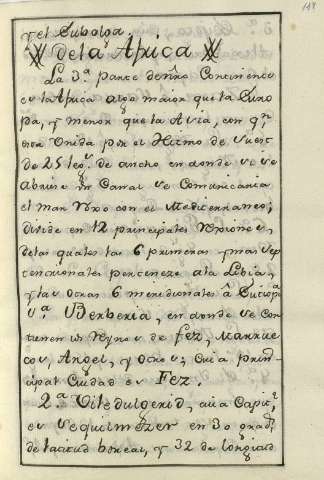 y el Subalga.
De la Africa
La 3.ª parte de nro Continente
es la Africa algo maior que la Euro
pa, y menor que la Asia, con q.n
esta Unida por el Istmo de Suest
de 25 leg.s de ancho en donde si se
abriere un Canal se comunicaria
el mar Roxo con el Mediterraneo;
divide en 12 principales Regiones,
delas quales las 6 primeras y mas sep
tentrionales pertenezen ala Libia,
y las otras 6 meridionales â Eutiopia
1.ª Berberia, en donde se con
tienen los Reynos de fez, Marrue
cos, Argel, y otros; cuia prin-
cipal Ciudad es Fez.
2.ª Viledulgerid, cuia Capit.l
es Sequelmezer en 30 grad.s
de latitud boreal, y 32 de longitud